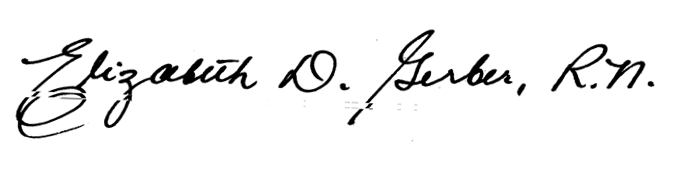 Elizabeth D. Gerber, R.N.